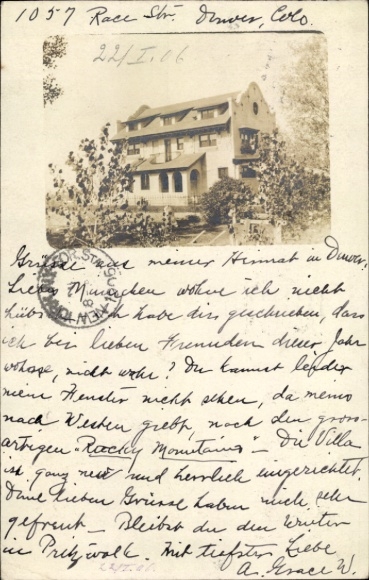 1057 Race Str. Denver, Colo.
22/I.06
Grüsse aus meiner Heimat in Denver.
Liebes Minnchen wohne ich nicht
hübsch? Ich habe dir geschrieben, dass
ich bei lieben Freunden dieses Jahr
wohne, nicht wahr? Du kannst leider
mein Fenster nicht sehen, da meins
nach Westen geht, nach den gross-
artigen "Rocky Mountains" – Die Villa
ist ganz neu und herrlich eingerichtet.
Deine lieben Grüsse haben mich sehr
gefreut – Bleibst du den Winter
in Pritzwalk. Mit tiefster Liebe
A. Grace W.
22/I.06